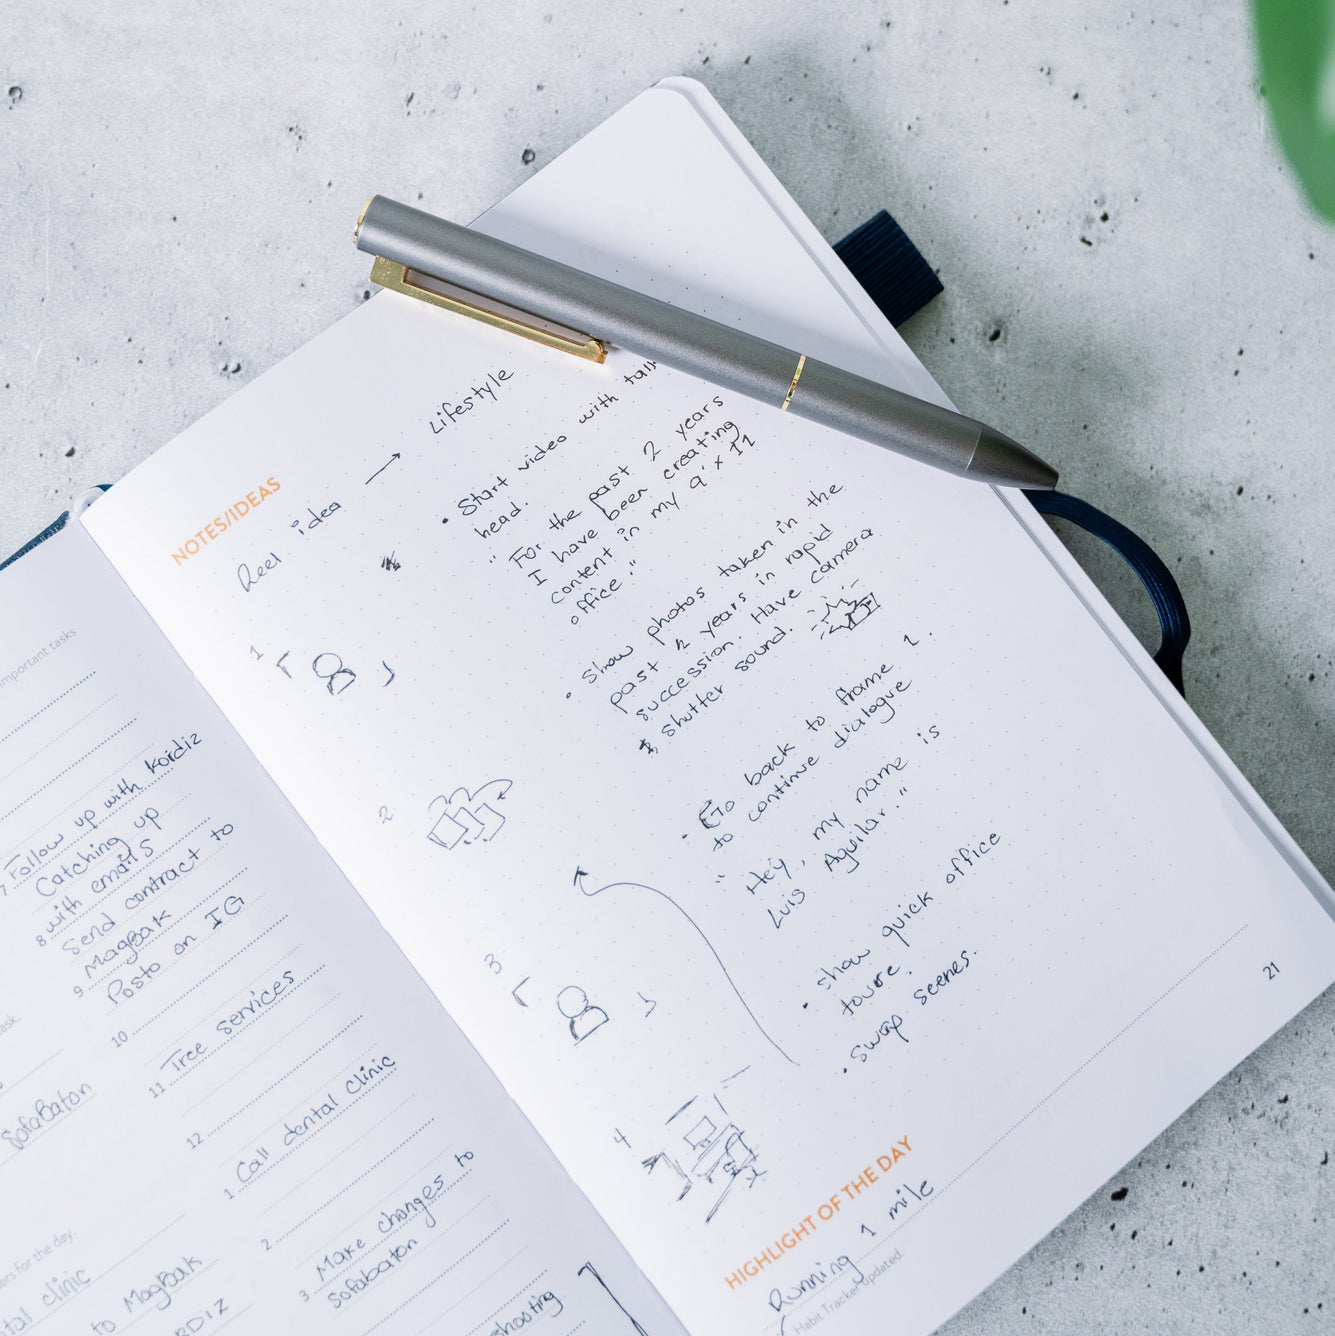 important tasks
7 Follow up with Kordiz
Catching up
8 with emails
Send contract to
9 MagBak
Posto on IG
10
11 Tree services
12
1 Call dental clinic
2
Make changes to
3 Sofabaton
shooting
task.
SofaBaton
ers for the day.
tal clinic
to MagBak
RDIZ
NOTES/IDEAS
Reel idea → Lifestyle
• Start video with talk
head.
" For the past 2 years
I have been creating
content in my 9' x 11
office."
• Show photos taken in the
past 2 years in rapid
succession. Have camera
shutter sound.
• Go back to frame 1.
to continue dialogue
" Hey, my name is
Luis Aguilar."
• show quick office
toure.
• swap scenes.
1
2
3
4
21
HIGHLIGHT OF THE DAY
Running 1 mile
Habit Tracker updated.